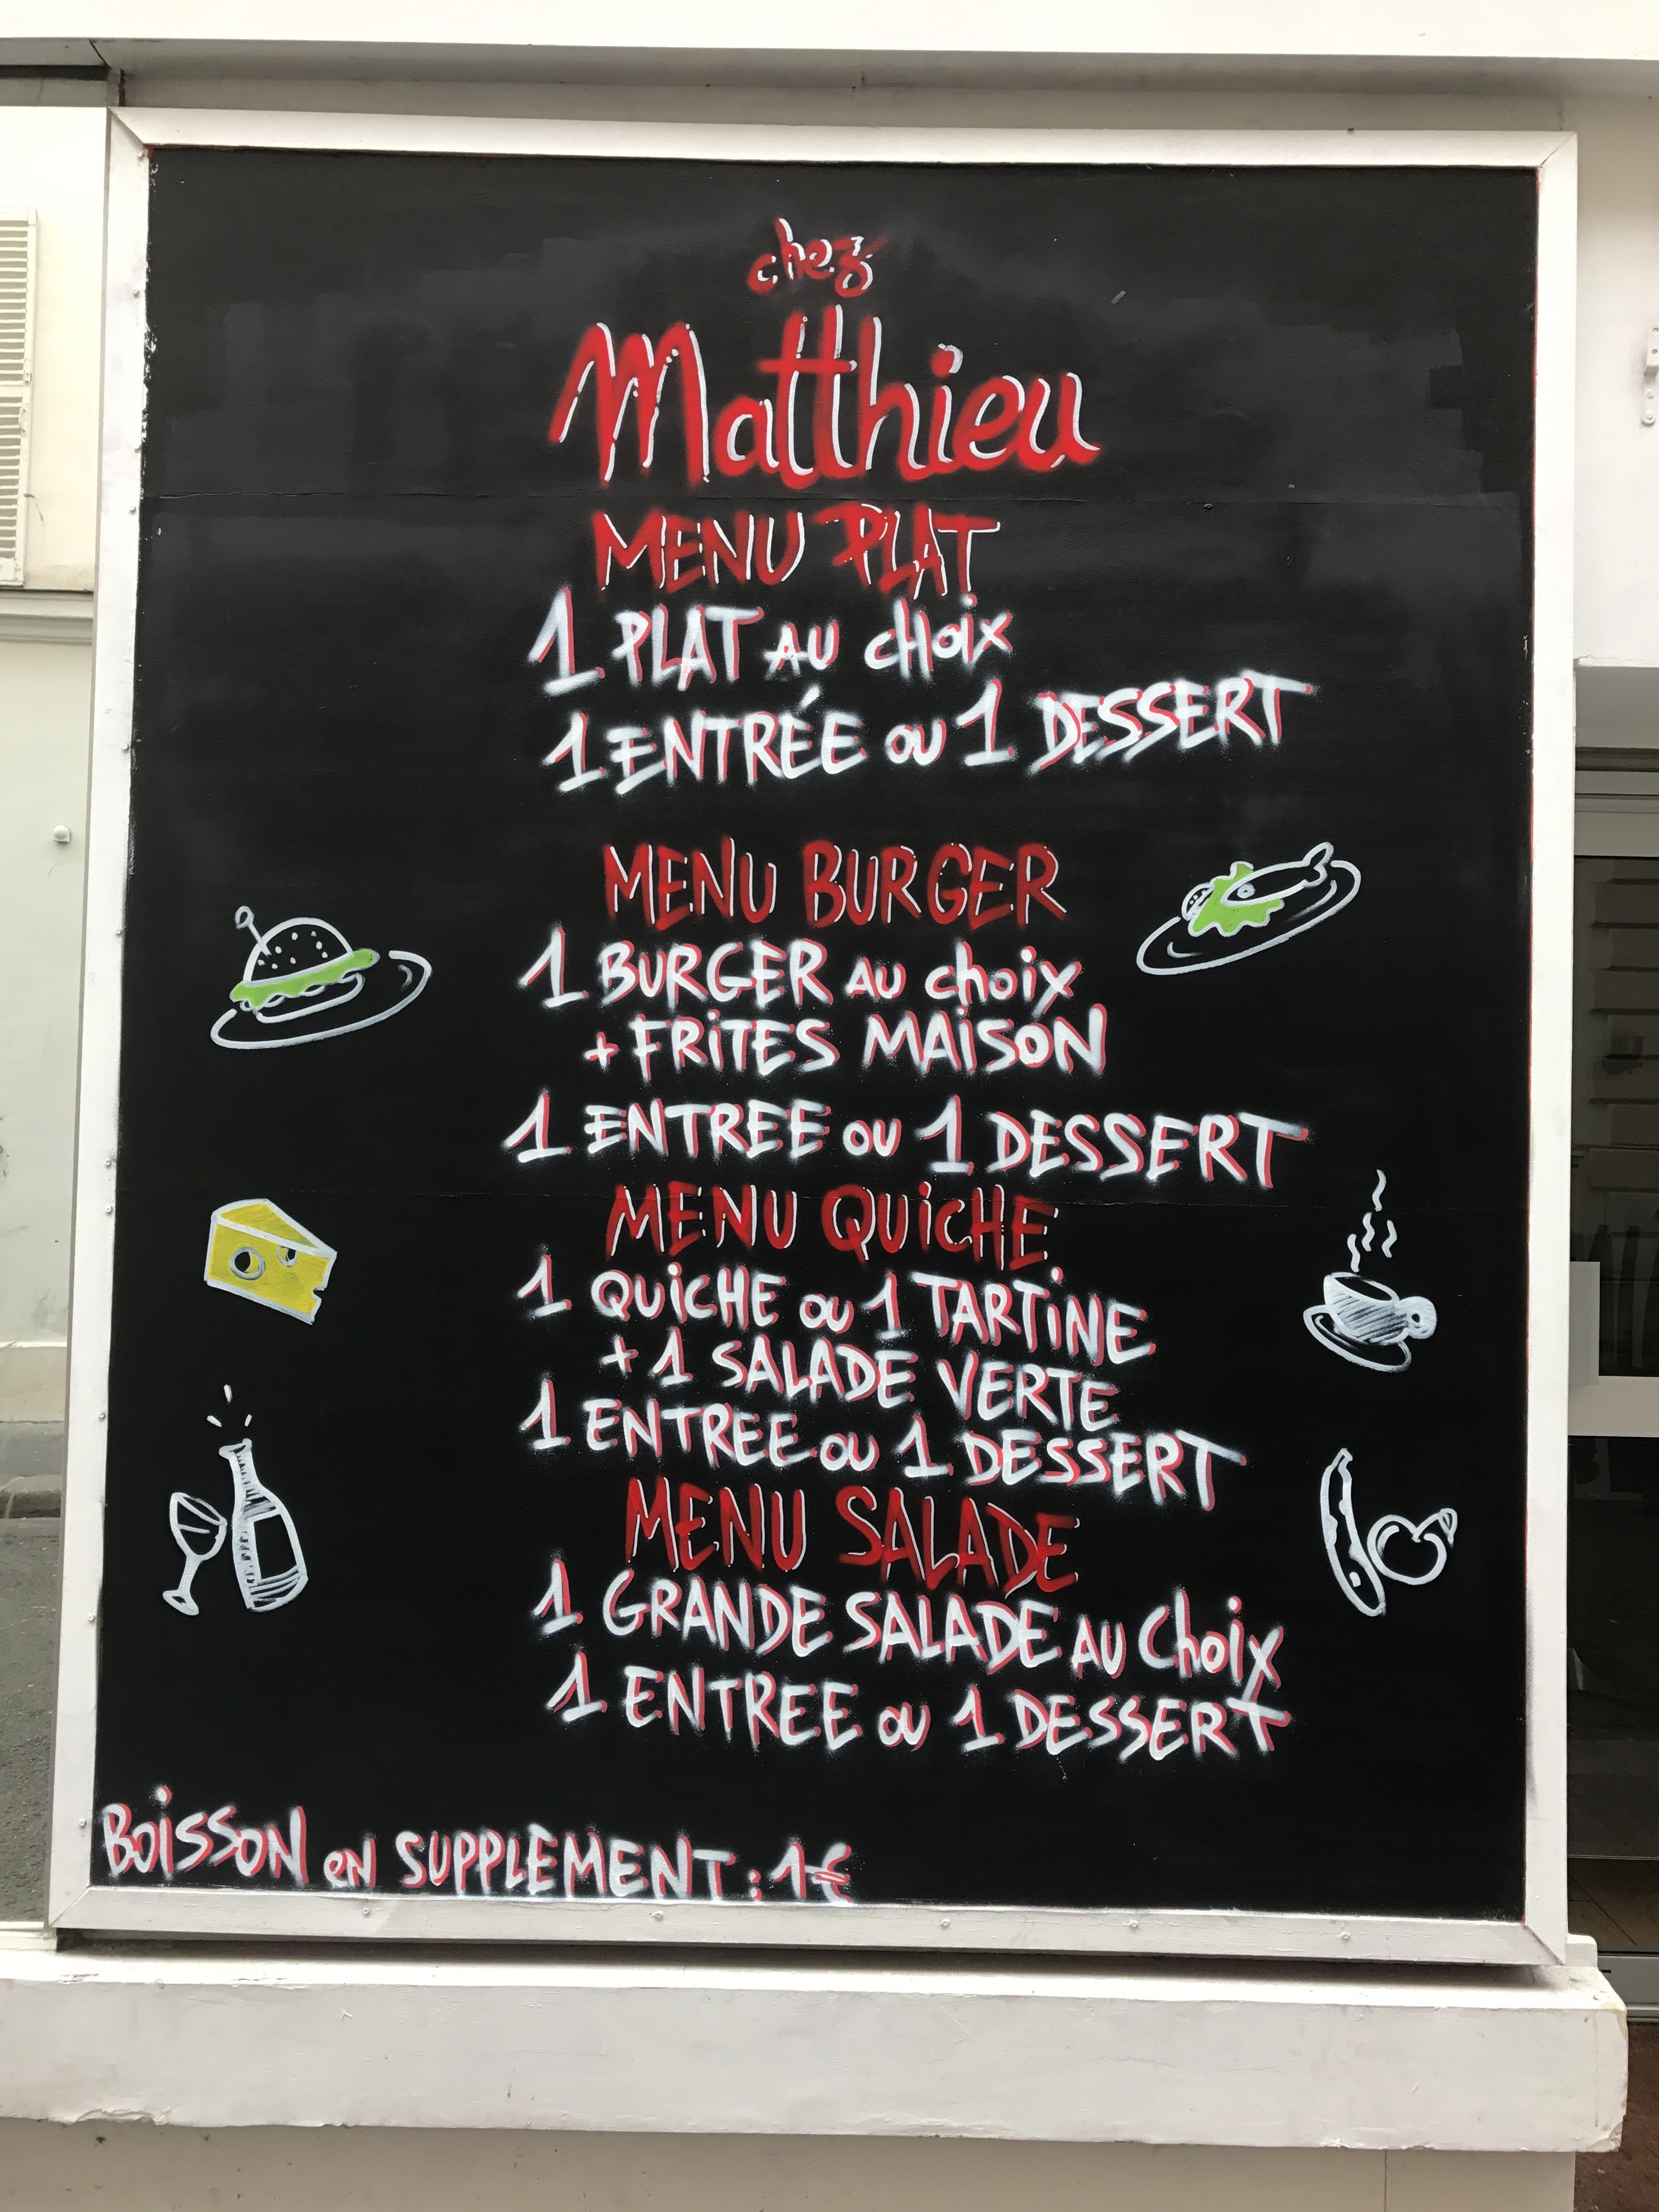 chez
Matthieu
MENU PLAT
1 PLAT AU CHOIX
1 ENTRÉE OU 1 DESSERT
MENU BURGER
1 BURGER AU choix
+ FRiTES MAiSON
1 ENTREE OU 1 DESSERT
MENU QUiCHE
1 QUiCHE OU 1 TARTiNE
+ 1 SALADE VERTE
1 ENTREE OU 1 DESSERT
MENU SALADE
1 GRANDE SALADE AU Choix
1 ENTREE OU 1 DESSERT
BOiSSON eN SUPPLEMENT : 1€